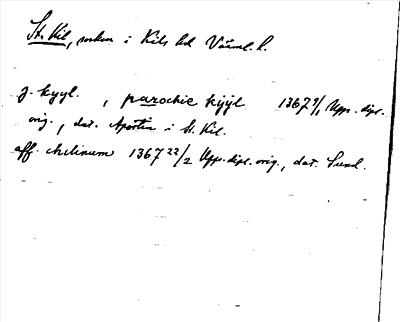 St. Kil, socken i Kils hd Värml. l.
j. kyyl. , parochie kijyl 1367 9/1 Upps. dipl.
orig., dat. Apertin i St. Kil.
aff. chilinum 1367 22/2 Upps. dipl. orig., dat. Sund.